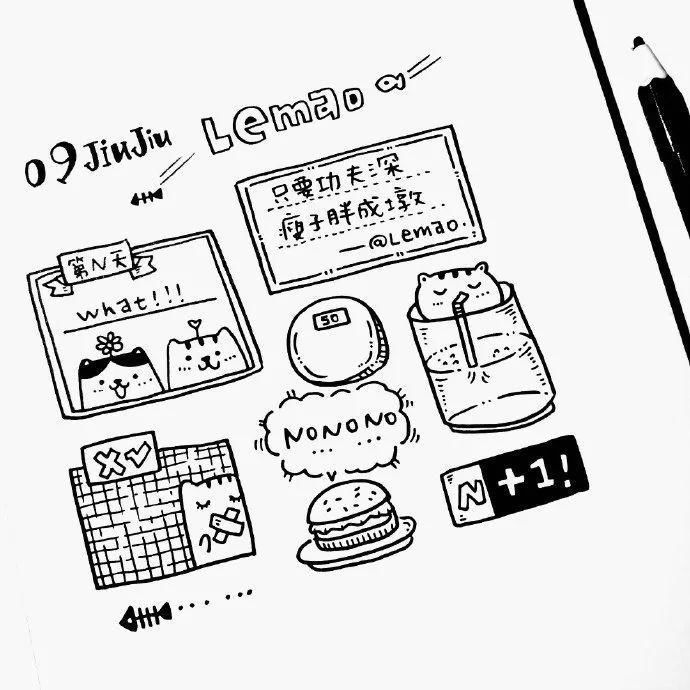 09JiuJiu
Lemao
只要功夫深
瘦子胖成墩
—@Lemao.
第N天
what!!!
50
NONONO
... ...
N+1!